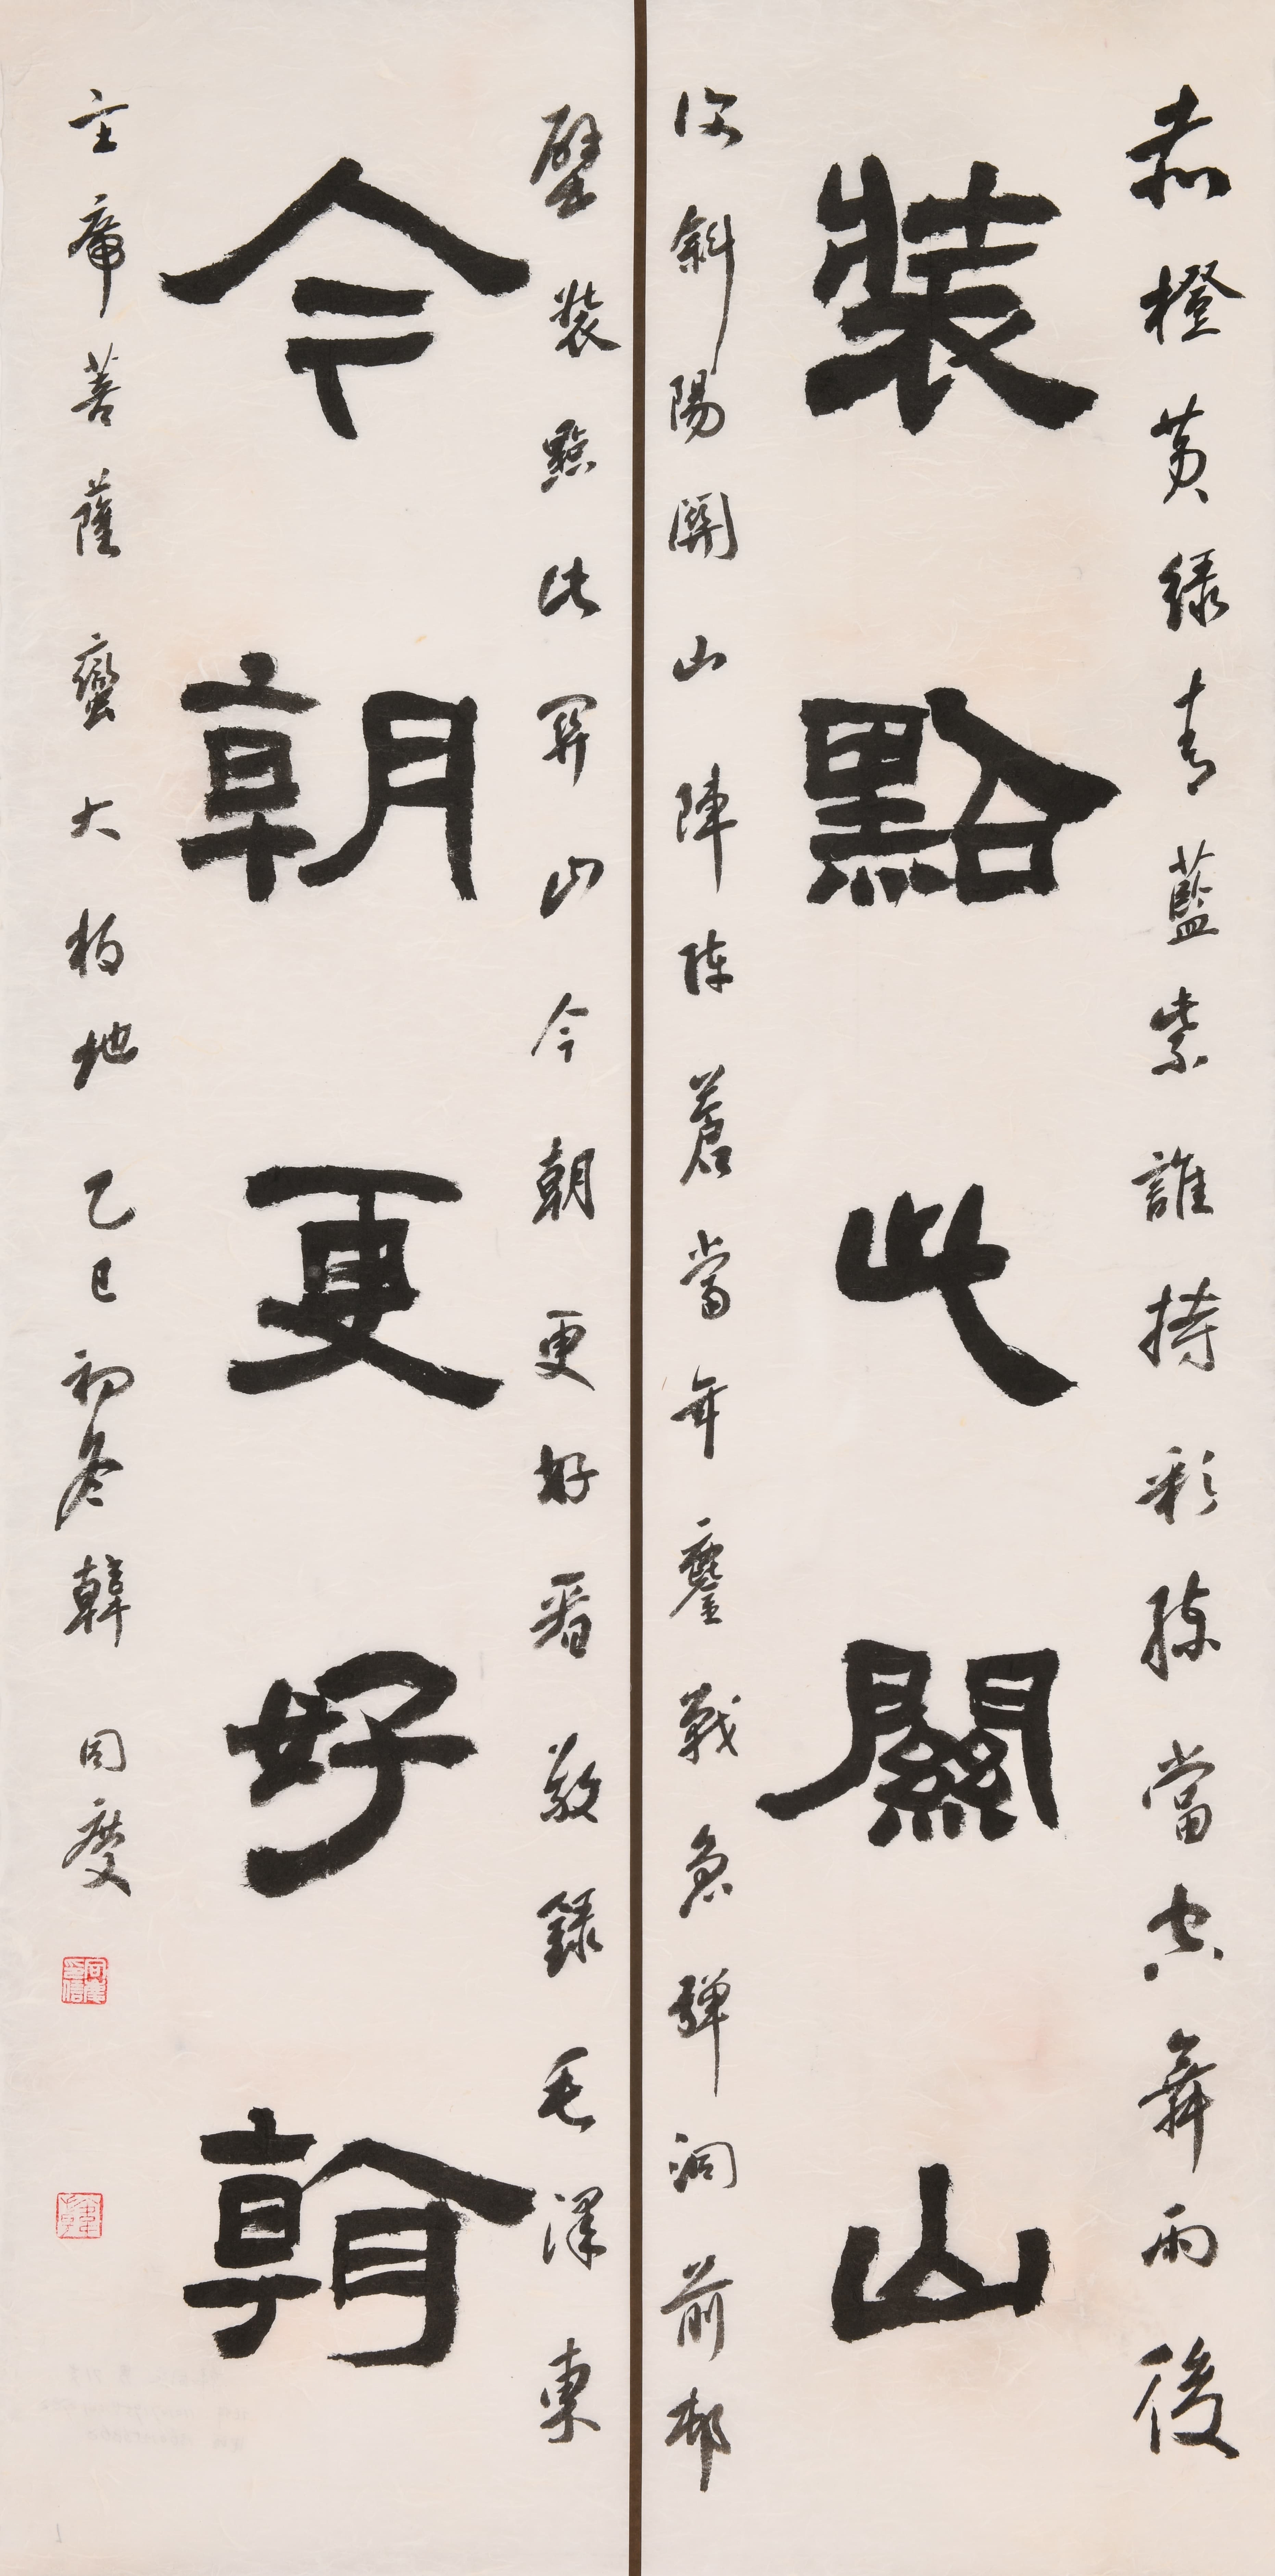 赤橙黃綠青藍紫誰持彩練當空舞雨後
裝點此關山
復斜陽關山陣陣蒼當年鏖戰急彈洞前邨
壁裝點此關山今朝更好看敬錄毛澤東
今朝更好看
主席菩薩蠻大柏地 乙巳初冬韓同慶